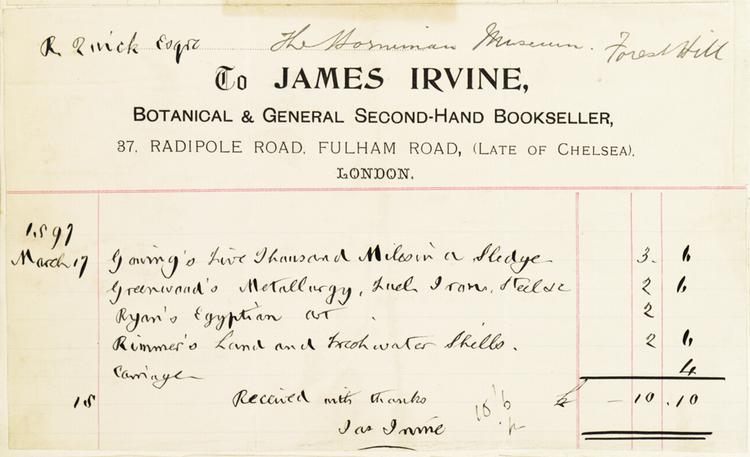 R Quick Esqre The Horniman Museum. Forest Hill
To JAMES IRVINE,
BOTANICAL & GENERAL SECOND-HAND BOOKSELLER,
37, RADIPOLE ROAD, FULHAM ROAD, (LATE OF CHELSEA),
LONDON.
1897
March 17 Gowing's Five Thousand Miles in a Sledge 3. 6
Greenwood's Metallurgy, Fuel Iron, Steel &c 2 6
Ryan's Egyptian art . 2
Rimmer's Land and Freshwater Shells. 2 6
Carriage 4
18 Received with thanks 10/6 £ – 10 . 10
Jas Irvine